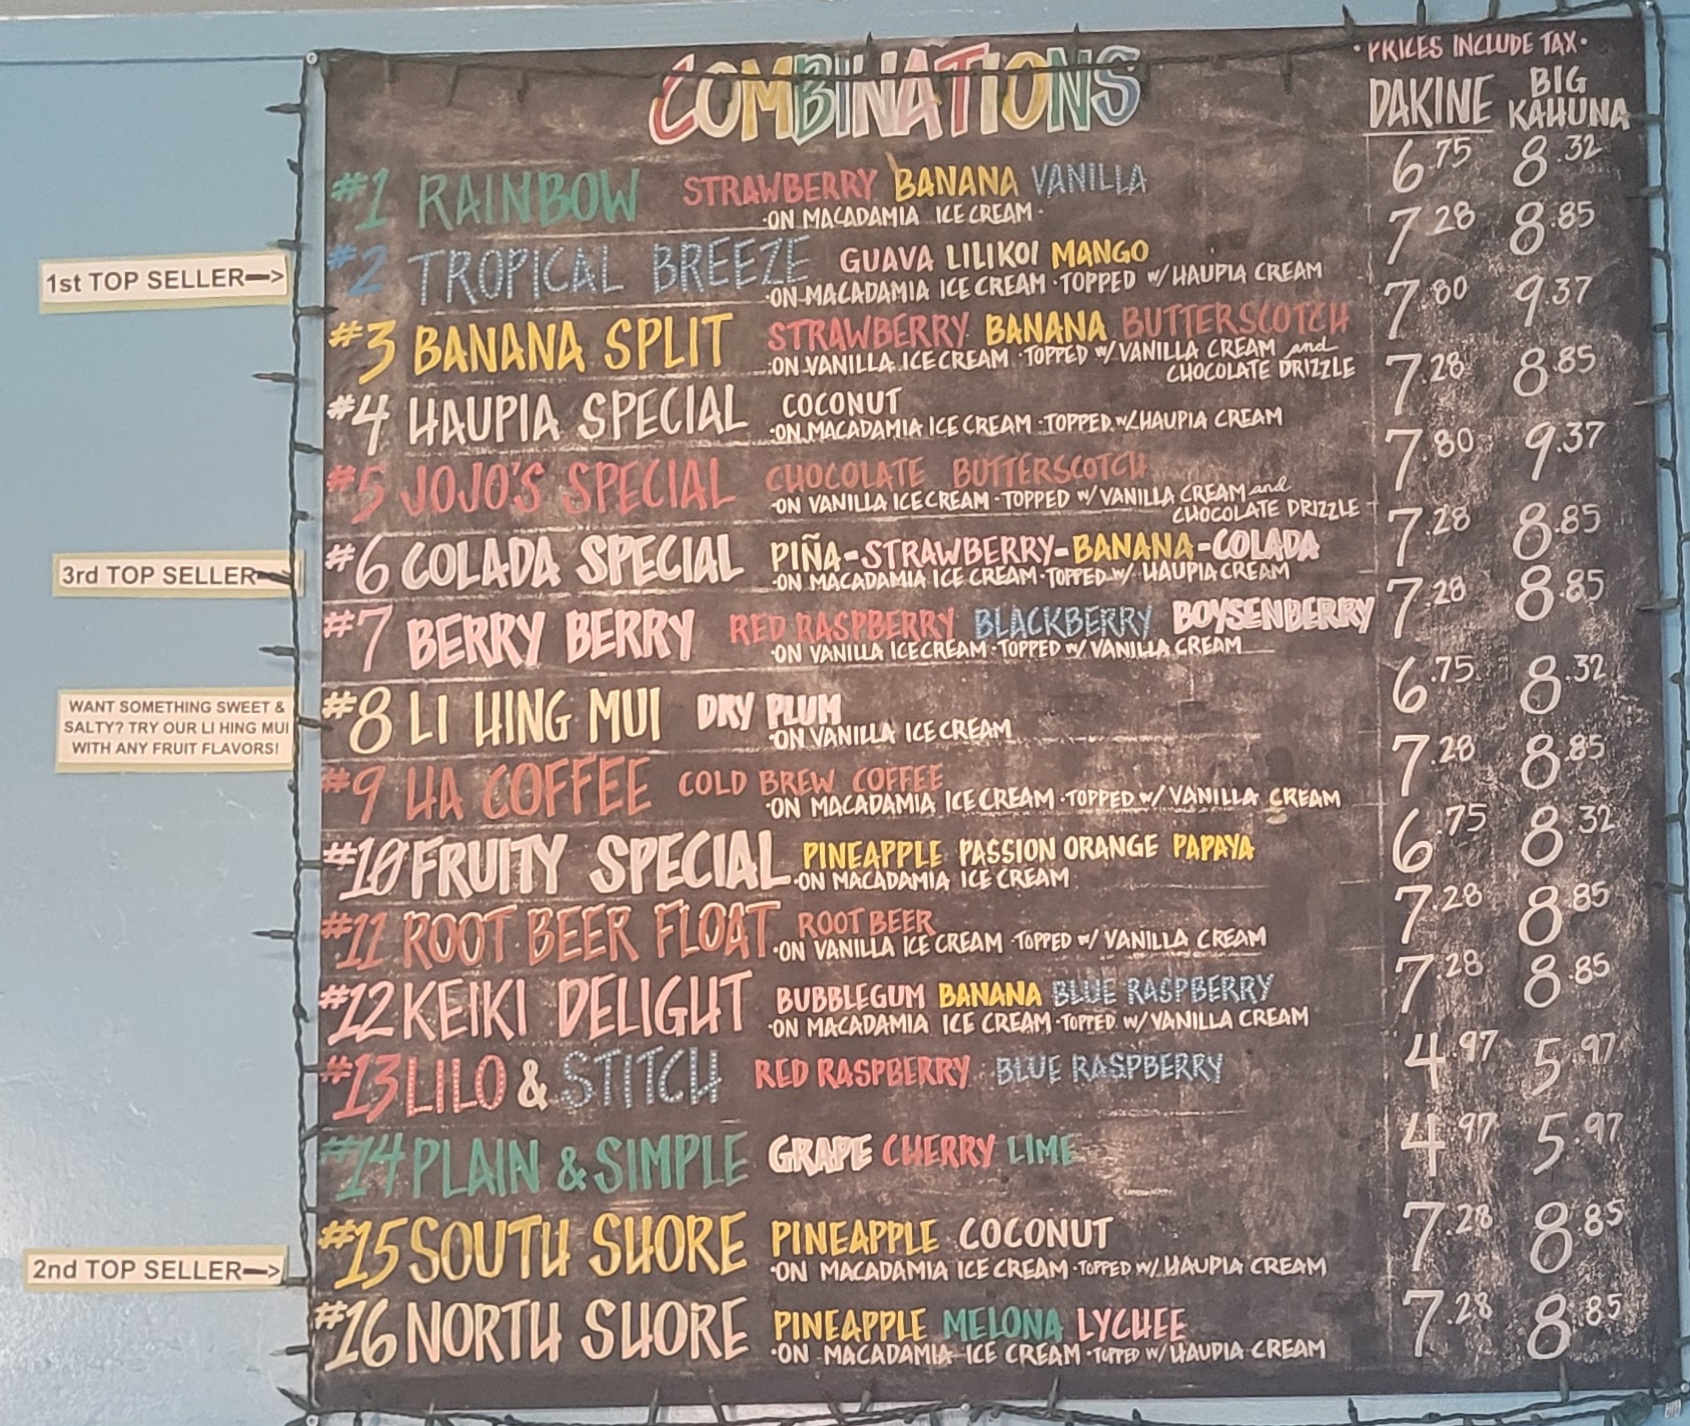 COMBINATIONS
·PRICES INCLUDE TAX·
DAKINE BIG KAHUNA
#1 RAINBOW STRAWBERRY BANANA VANILLA 6.75 8.32
·ON MACADAMIA ICE CREAM·
1st TOP SELLER-->
#2 TROPICAL BREEZE GUAVA LILIKOI MANGO 7.28 8.85
·ON MACADAMIA ICE CREAM ·TOPPED W/ HAUPIA CREAM
#3 BANANA SPLIT STRAWBERRY BANANA BUTTERSCOTCH 7.80 9.37
·ON VANILLA ICE CREAM ·TOPPED W/ VANILLA CREAM and
CHOCOLATE DRIZZLE
#4 HAUPIA SPECIAL COCONUT 7.28 8.85
·ON MACADAMIA ICE CREAM ·TOPPED W/ HAUPIA CREAM
#5 JOJO'S SPECIAL CHOCOLATE BUTTERSCOTCH 7.80 9.37
·ON VANILLA ICE CREAM ·TOPPED W/ VANILLA CREAM and
CHOCOLATE DRIZZLE
3rd TOP SELLER
#6 COLADA SPECIAL PIÑA-STRAWBERRY-BANANA-COLADA 7.28 8.85
·ON MACADAMIA ICE CREAM ·TOPPED W/ HAUPIA CREAM
#7 BERRY BERRY RED RASPBERRY BLACKBERRY BOYSENBERRY 7.28 8.85
·ON VANILLA ICE CREAM ·TOPPED W/ VANILLA CREAM
WANT SOMETHING SWEET &
SALTY? TRY OUR LI HING MUI
WITH ANY FRUIT FLAVORS!
#8 LI HING MUI DRY PLUM 6.75 8.32
·ON VANILLA ICE CREAM
#9 HA COFFEE COLD BREW COFFEE 7.28 8.85
·ON MACADAMIA ICE CREAM ·TOPPED W/ VANILLA CREAM
#10 FRUITY SPECIAL PINEAPPLE PASSION ORANGE PAPAYA 6.75 8.32
·ON MACADAMIA ICE CREAM
#11 ROOT BEER FLOAT ROOT BEER 7.28 8.85
·ON VANILLA ICE CREAM ·TOPPED W/ VANILLA CREAM
#12 KEIKI DELIGHT BUBBLEGUM BANANA BLUE RASPBERRY 7.28 8.85
·ON MACADAMIA ICE CREAM ·TOPPED W/ VANILLA CREAM
#13 LILO & STITCH RED RASPBERRY BLUE RASPBERRY 4.97 5.97
#14 PLAIN & SIMPLE GRAPE CHERRY LIME 4.97 5.97
#15 SOUTH SHORE PINEAPPLE COCONUT 7.28 8.85
2nd TOP SELLER-->
·ON MACADAMIA ICE CREAM ·TOPPED W/ HAUPIA CREAM
#16 NORTH SHORE PINEAPPLE MELONA LYCHEE 7.28 8.85
·ON MACADAMIA ICE CREAM ·TOPPED W/ HAUPIA CREAM